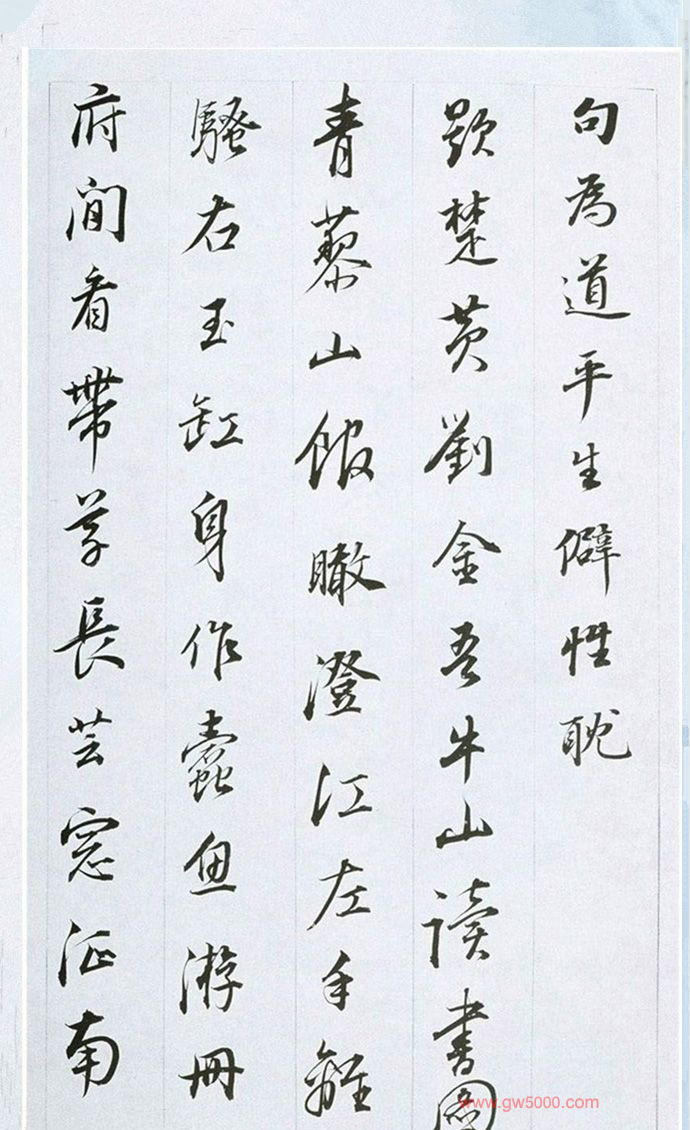 句為道平生僻性耽
題楚黄劉金吾牛山读書圖
青藜山館瞰澄江左手離
騷右玉缸身作蠹魚游冊
府閒看帶草長芸窓征南
www.gw5000.com